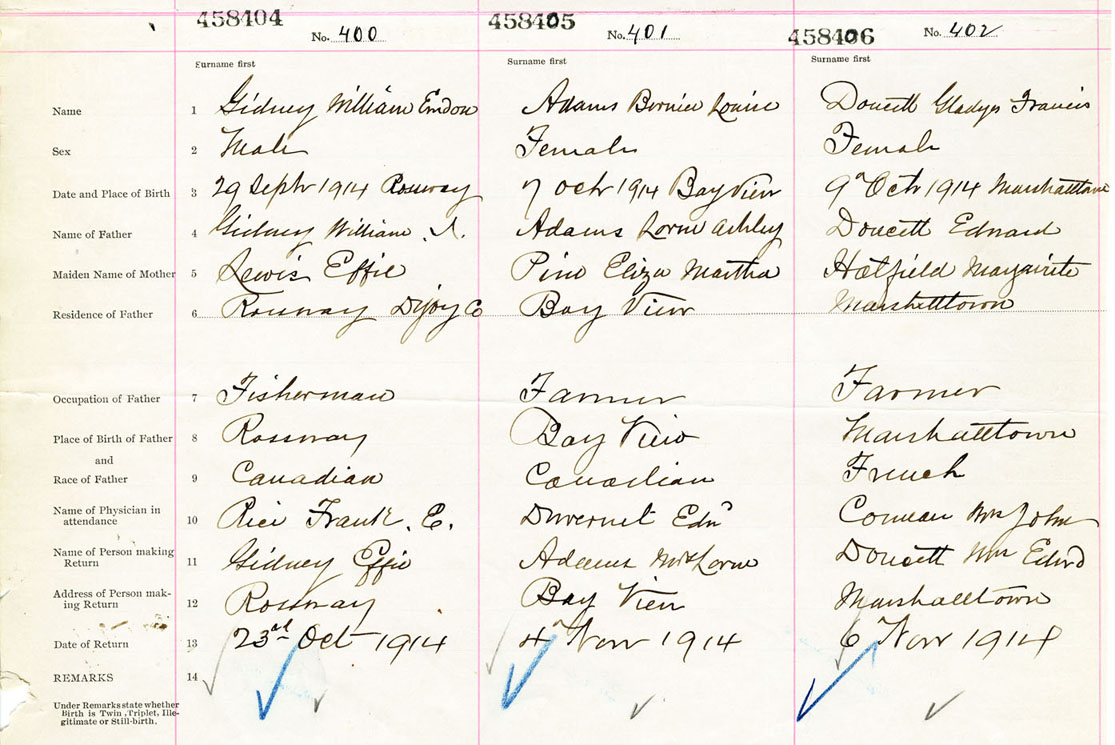 458404 458405 458406
No. 400 No. 401 No. 402
Surname first Surname first Surname first
Name 1 Gidney William Emdon Adams Bernice Louise Doucett Gladys Francis
Sex 2 Male Female Female
Date and Place of Birth 3 29 Sept 1914 Rossway 7 Oct 1914 Bay View 9th Oct 1914 Marshalltown
Name of Father 4 Gidney William. A. Adams Lorne Ashley Doucett Edward
Maiden Name of Mother 5 Lewis Effie Pine Eliza Martha Hatfield Margarite
Residence of Father 6 Rossway Digby Co Bay View Marshalltown
Occupation of Father 7 Fisherman Farmer Farmer
Place of Birth of Father 8 Rossway Bay View Marshalltown
and
Race of Father 9 Canadian Canadian French
Name of Physician in
attendance 10 Rice Frank. E. Duvernet Edn Comeau Mrs John
Name of Person making
Return 11 Gidney Effie Adams Mrs Lorne Doucett Mrs Edwd
Address of Person mak-
ing Return 12 Rossway Bay View Marshalltown
Date of Return 13 23rd Oct 1914 4th Nov 1914 6th Nov 1914
REMARKS 14
Under Remarks state whether
Birth is Twin, Triplet, Ille-
gitimate or Still-birth.